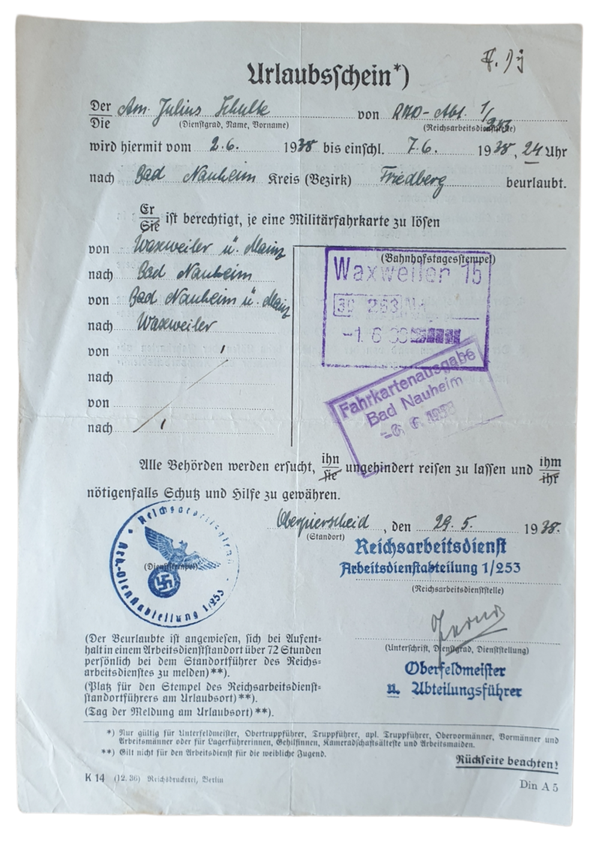 Urlaubsschein*)
Der Am. Julius Schulte von RAD-Abt. 1/253
Die (Dienstgrad, Name, Vorname) (Reichsarbeitsdienststelle)
wird hiermit vom 2.6. 1938 bis einschl. 7.6. 1938, 24 Uhr
nach Bad Nauheim Kreis (Bezirk) Friedberg beurlaubt.
Er
Sie ist berechtigt, je eine Militärfahrkarte zu lösen
von Waxweiler ü. Mainz
nach Bad Nauheim
von Bad Nauheim ü. Mainz
nach Waxweiler
von
nach
von
nach
(Bahnhofstagesstempel)
Waxweiler 15
-1 6 38
Fahrkartenausgabe
Bad Nauheim
6 1938
Alle Behörden werden ersucht, ihn
sie ungehindert reisen zu lassen und ihm
ihr
nötigenfalls Schutz und Hilfe zu gewähren.
Oberpierscheid, den 29.5. 1938.
(Standort)
Reichsarbeitsdienst
Arbeitsdienstabteilung 1/253
(Reichsarbeitsdienststelle)
Reichsarbeitsdienst
Arb.-Dienstabteilung 1/253
(Dienststempel)
(Unterschrift, Dienstgrad, Dienststellung)
Oberfeldmeister
u. Abteilungsführer
(Der Beurlaubte ist angewiesen, sich bei Aufent-
halt in einem Arbeitsdienststandort über 72 Stunden
persönlich bei dem Standortführer des Reichs-
arbeitsdienstes zu melden)**).
(Platz für den Stempel des Reichsarbeitsdienst-
standortführers am Urlaubsort)**).
(Tag der Meldung am Urlaubsort)**).
*) Nur gültig für Unterfeldmeister, Obertruppführer, Truppführer, apl. Truppführer, Obervormänner, Vormänner und
Arbeitsmänner oder für Lagerführerinnen, Gehilfinnen, Kameradschaftsälteste und Arbeitsmaiden.
**) Gilt nicht für den Arbeitsdienst für die weibliche Jugend.
Rückseite beachten!
K 14 (12. 36) Reichsdruckerei, Berlin
Din A 5